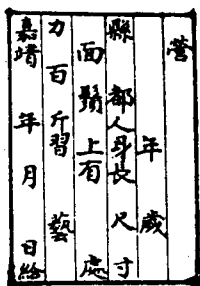 營
年 歲
縣 都人身長 尺 寸
面 鬚上有 處
力 百 斤習 藝
嘉靖 年 月 日給